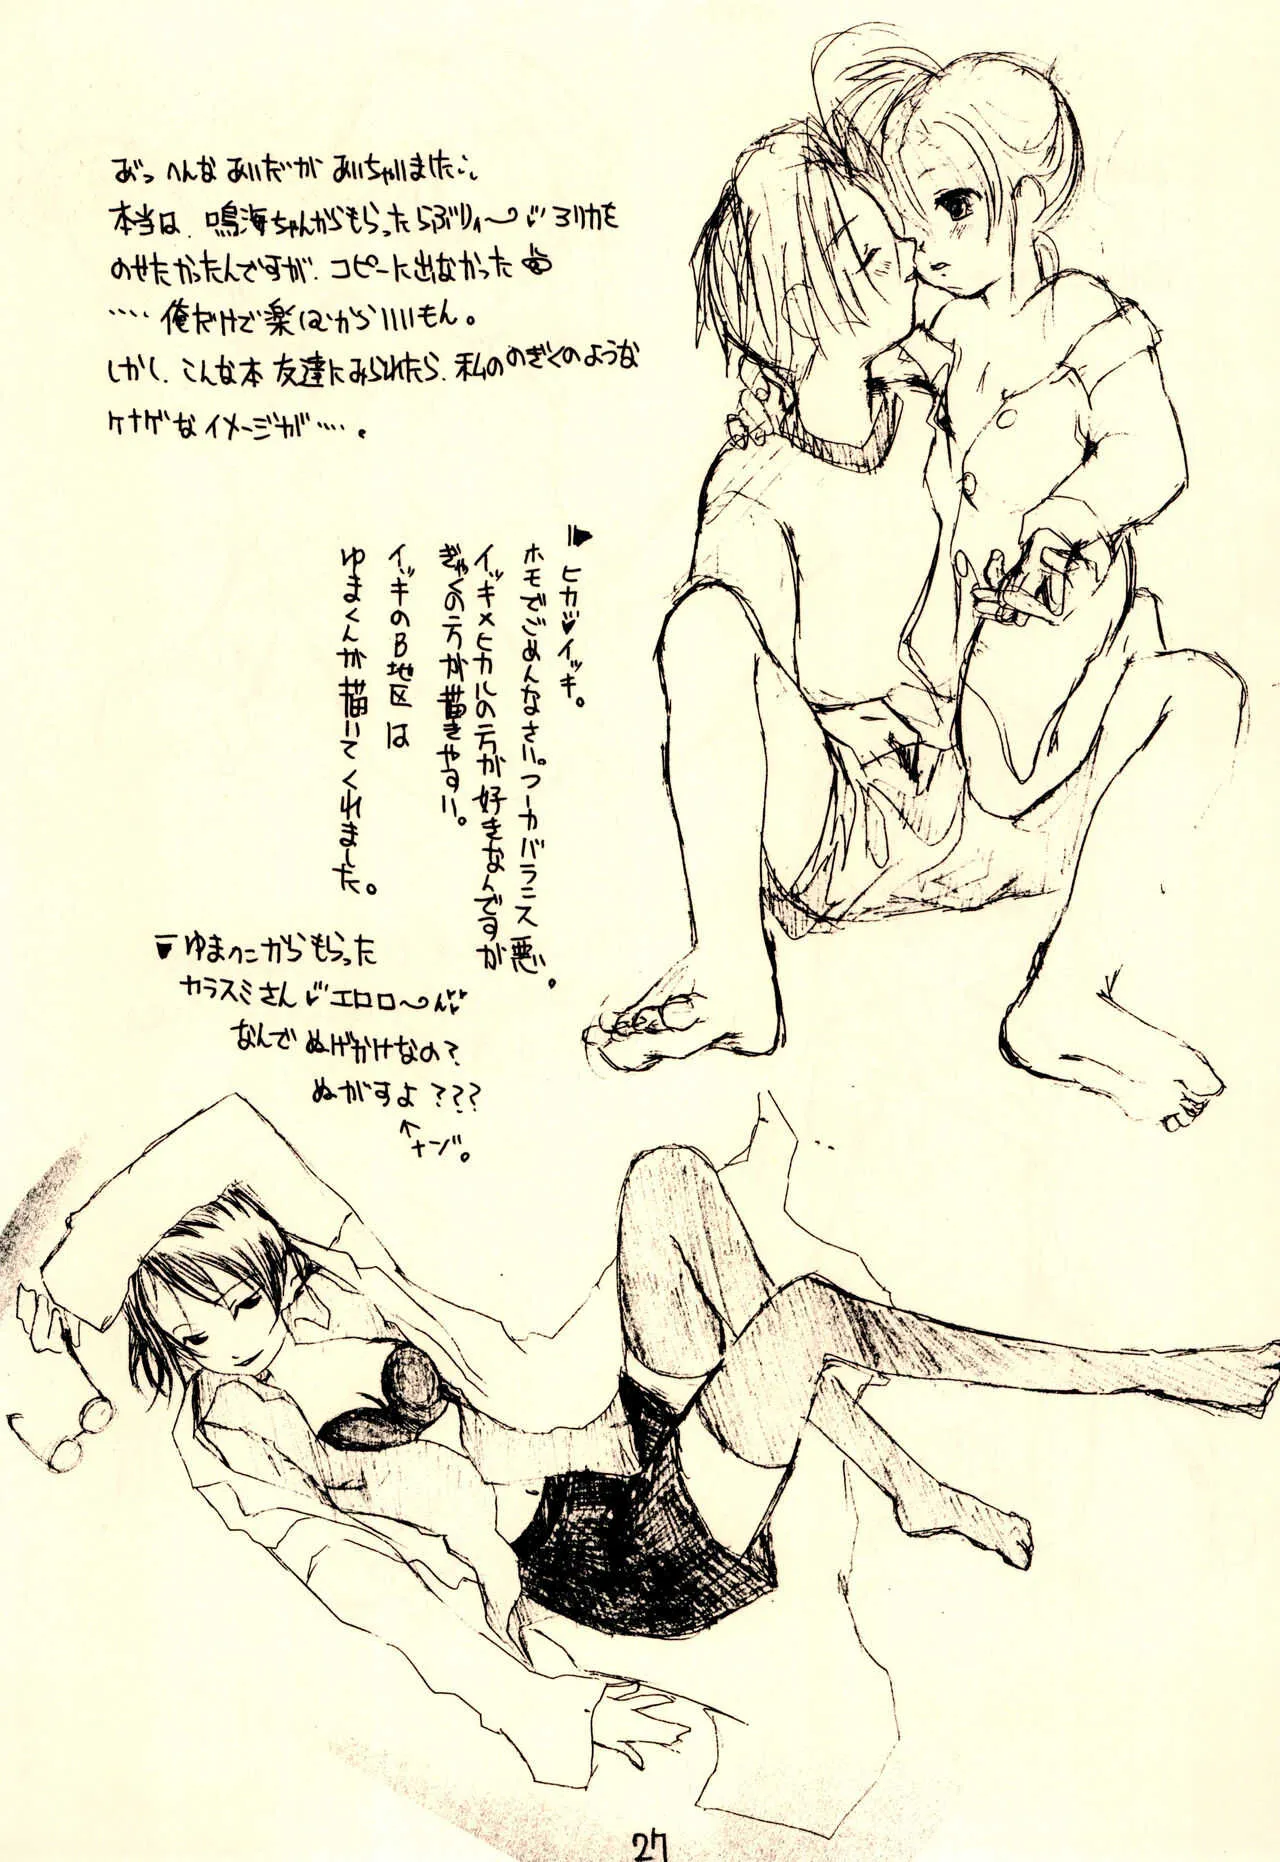 あっへんなあいだがあいちゃいました
本当は、鳴海ちゃんからもらったらぶりぃ〜♡ エリカを
のせたかったんですが、コピーに出なかった
‥‥俺だけで楽しむからいいもん。
しかし、こんな本友達にみられたら、私ののぎくのような
ケナゲなイメージが‥‥。
ヒカ♡イッキ。
ホモでごめんなさい。つーかバランス悪。
イッキ×ヒカルの方が好きなんですが
ぎゃくの方が描きやすい。
イッキのB地区は
ゆまくんが描いてくれました。
ゆまへこからもらった
カラスミさん♡エロロ〜ん♡♡
なんでぬげかけなの?
ぬがすよ???
↑ナゾ。
27